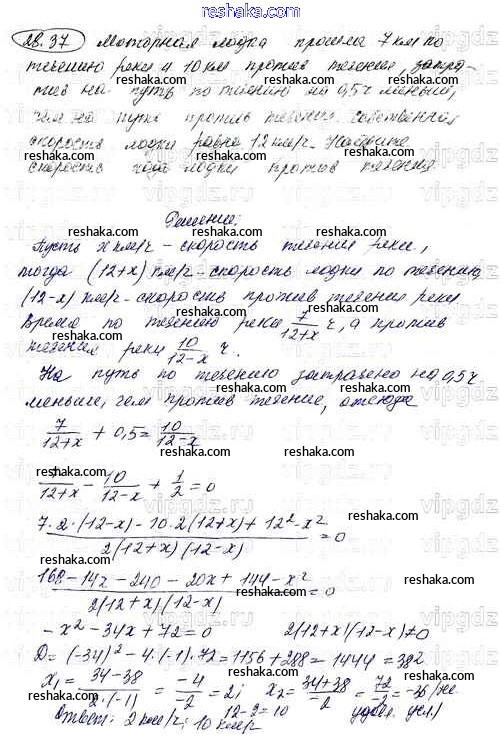 reshaka.com
28.37 Моторная лодка прошла 7 км по
reshaka.com reshaka.com
течению реки и 10 км против течения, затра-
reshaka.com reshaka.com reshaka.com
тив на путь по течению на 0,5 ч меньше,
reshaka.com reshaka.com
чем на путь против течения. Собственная
reshaka.com reshaka.com reshaka.com
скорость лодки равна 12 км/ч. Найдите
reshaka.com reshaka.com
скорость хода лодки против течения
reshaka.com reshaka.com reshaka.com
Решение:
Пусть x км/ч – скорость течения реки,
тогда (12+x) км/ч – скорость лодки по течению
(12-x) км/ч – скорость против течения реки
Время по течению реки 7/(12+x) ч, а против
течения реки 10/(12-x) ч.
На путь по течению затрачено на 0,5 ч
меньше, чем против течение, отсюда
7/(12+x) + 0,5 = 10/(12-x)
7/(12+x) - 10/(12-x) + 1/2 = 0
(7·2·(12-x) - 10·2(12+x) + 12² - x²)/(2(12+x)(12-x)) = 0
(168 - 14x - 240 - 20x + 144 - x²)/(2(12+x)(12-x)) = 0
-x² - 34x + 72 = 0 2(12+x)(12-x) ≠ 0
D = (-34)² - 4·(-1)·72 = 1156 + 288 = 1444 = 38²
x₁ = (34-38)/(2·(-1)) = -4/-2 = 2; x₂ = (34+38)/-2 = 72/-2 = -36 /не
12-2=10 удовл. усл./
Ответ: 2 км/ч; 10 км/ч
vipgdz.ru